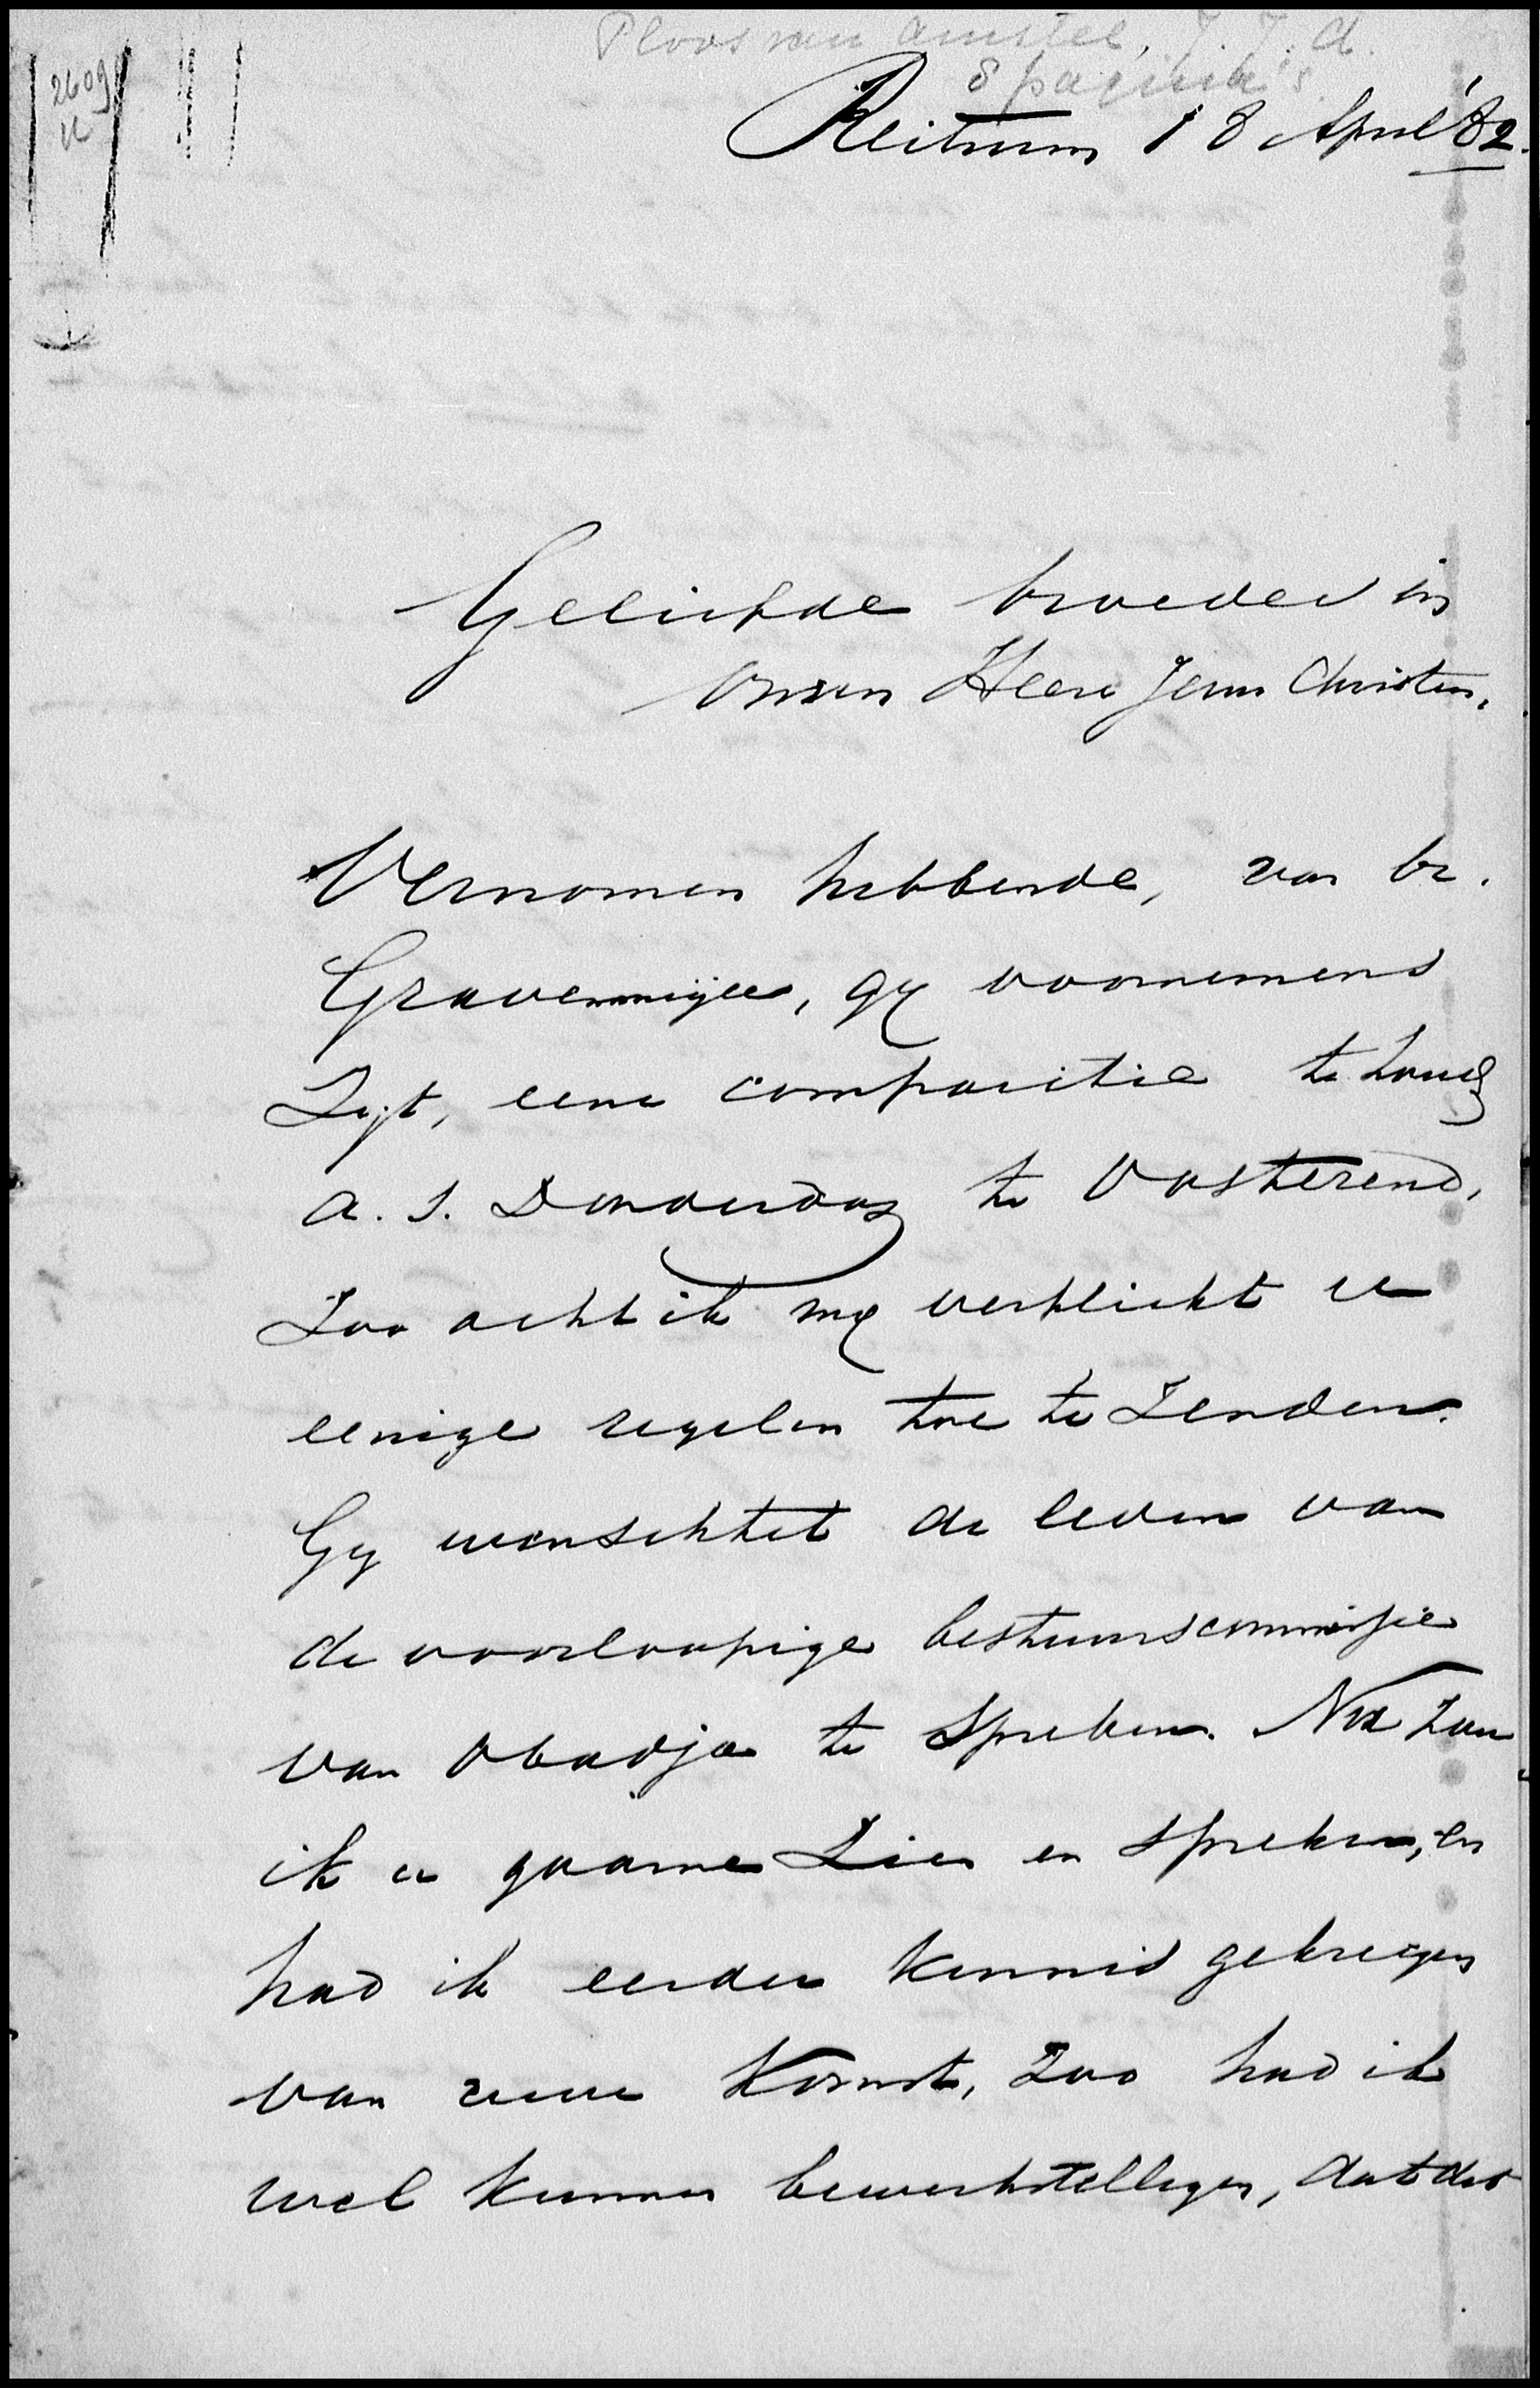 Ploos van Amstel, J.J.A.
8 pagina's
2609
Reitsum 18 April '82.
Geliefde broeder in
onsen Heere Jesus Christus,
Vernomen hebbende, van br.
Gravemeijer, gij voornemens
zijt, eene comparitie te houd
a. s. Donderdag te Oosterend,
zoo acht ik mij verplicht u
eenige regelen toe te zenden.
Gij wenschtet de leden van
de voorloopige bestuurscommissie
van Obadja te spreken. Nu zou
ik u gaarne zien en spreken, en
had ik eerder kennis gekregen
van uwe komst, zoo had ik
wel kunnen bewerkstelligen, dat dit